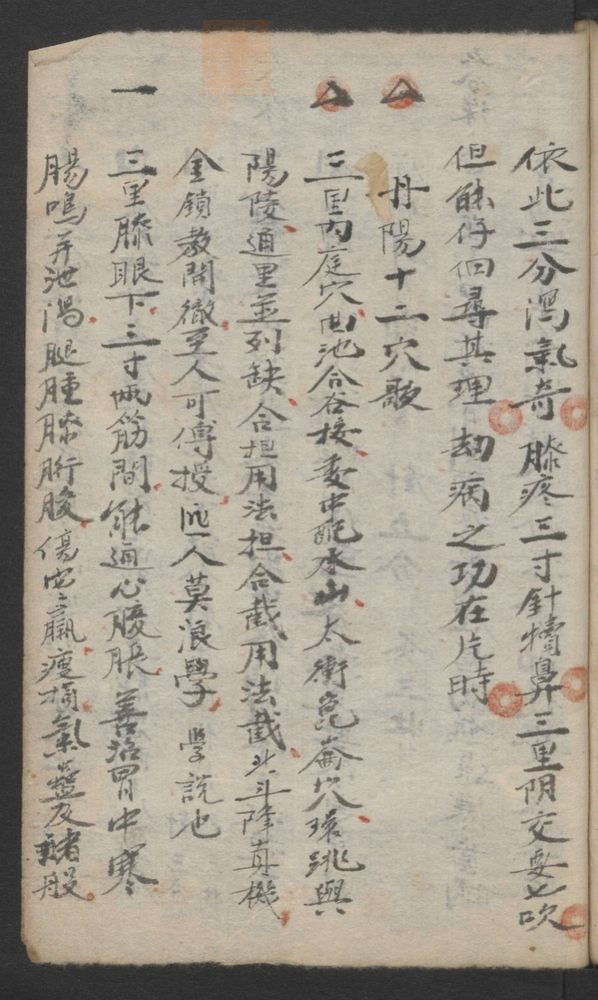 依此三分瀉氣奇膝疼三寸針犢鼻三里阴交要七吹
但能仔囬尋其理劫病之功在片時
丹陽十二穴歌
三里內庭穴曲池合谷接委中配承山太冲崑崙穴環跳與
陽陵通里並列缺合担用法担合截用法截斗斗降真機
金鎖教開徹至人可傳授匪人莫浪學學說也
三里膝眼下三寸両筋間能通心腹脹善治胃中寒
腸鳴并池瀉腿腫膝胻酸傷宀羸瘦損氣蠱及諸般